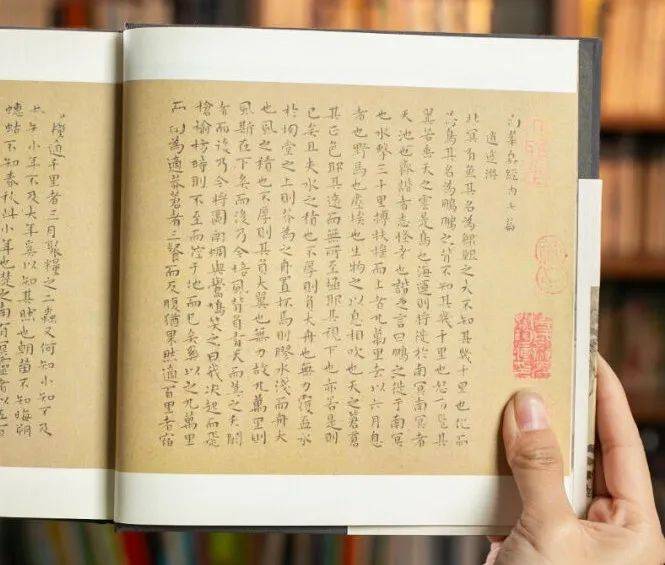 南華真經內七篇
逍遙游
北冥有魚其名為鯤鯤之大不知其幾千里也化而
為鳥其名為鵬鵬之背不知其幾千里也怒而飛其
翼若垂天之雲是鳥也海運則將徙於南冥南冥者
天池也齊諧者志怪者也諧之言曰鵬之徙于南冥
也水擊三千里摶扶搖而上者九萬里去以六月息
者也野馬也塵埃也生物之以息相吹也天之蒼蒼
其正色耶其遠而無所至極耶其視下也亦若是則
已矣且夫水之積也不厚則負大舟也無力覆盃水
於坳堂之上則芥為之舟置杯焉則膠水淺而舟大
也風之積也不厚則其負大翼也無力故九萬里則
風斯在下矣而後乃今培風背負青天而莫之夭閼
者而後乃今將圖南蜩與鷽鳩笑之曰我決起而飛
槍榆枋時則不至而控于地而已矣奚以之九萬里
而南為適莽蒼者三飡而反腹猶果然適百里者宿
糧適千里者三月聚糧之二蟲又何知小知不及
知小年不及大年奚以知其然也朝菌不知晦朔
蟪蛄不知春秋此小年也楚之南有冥靈者以五百